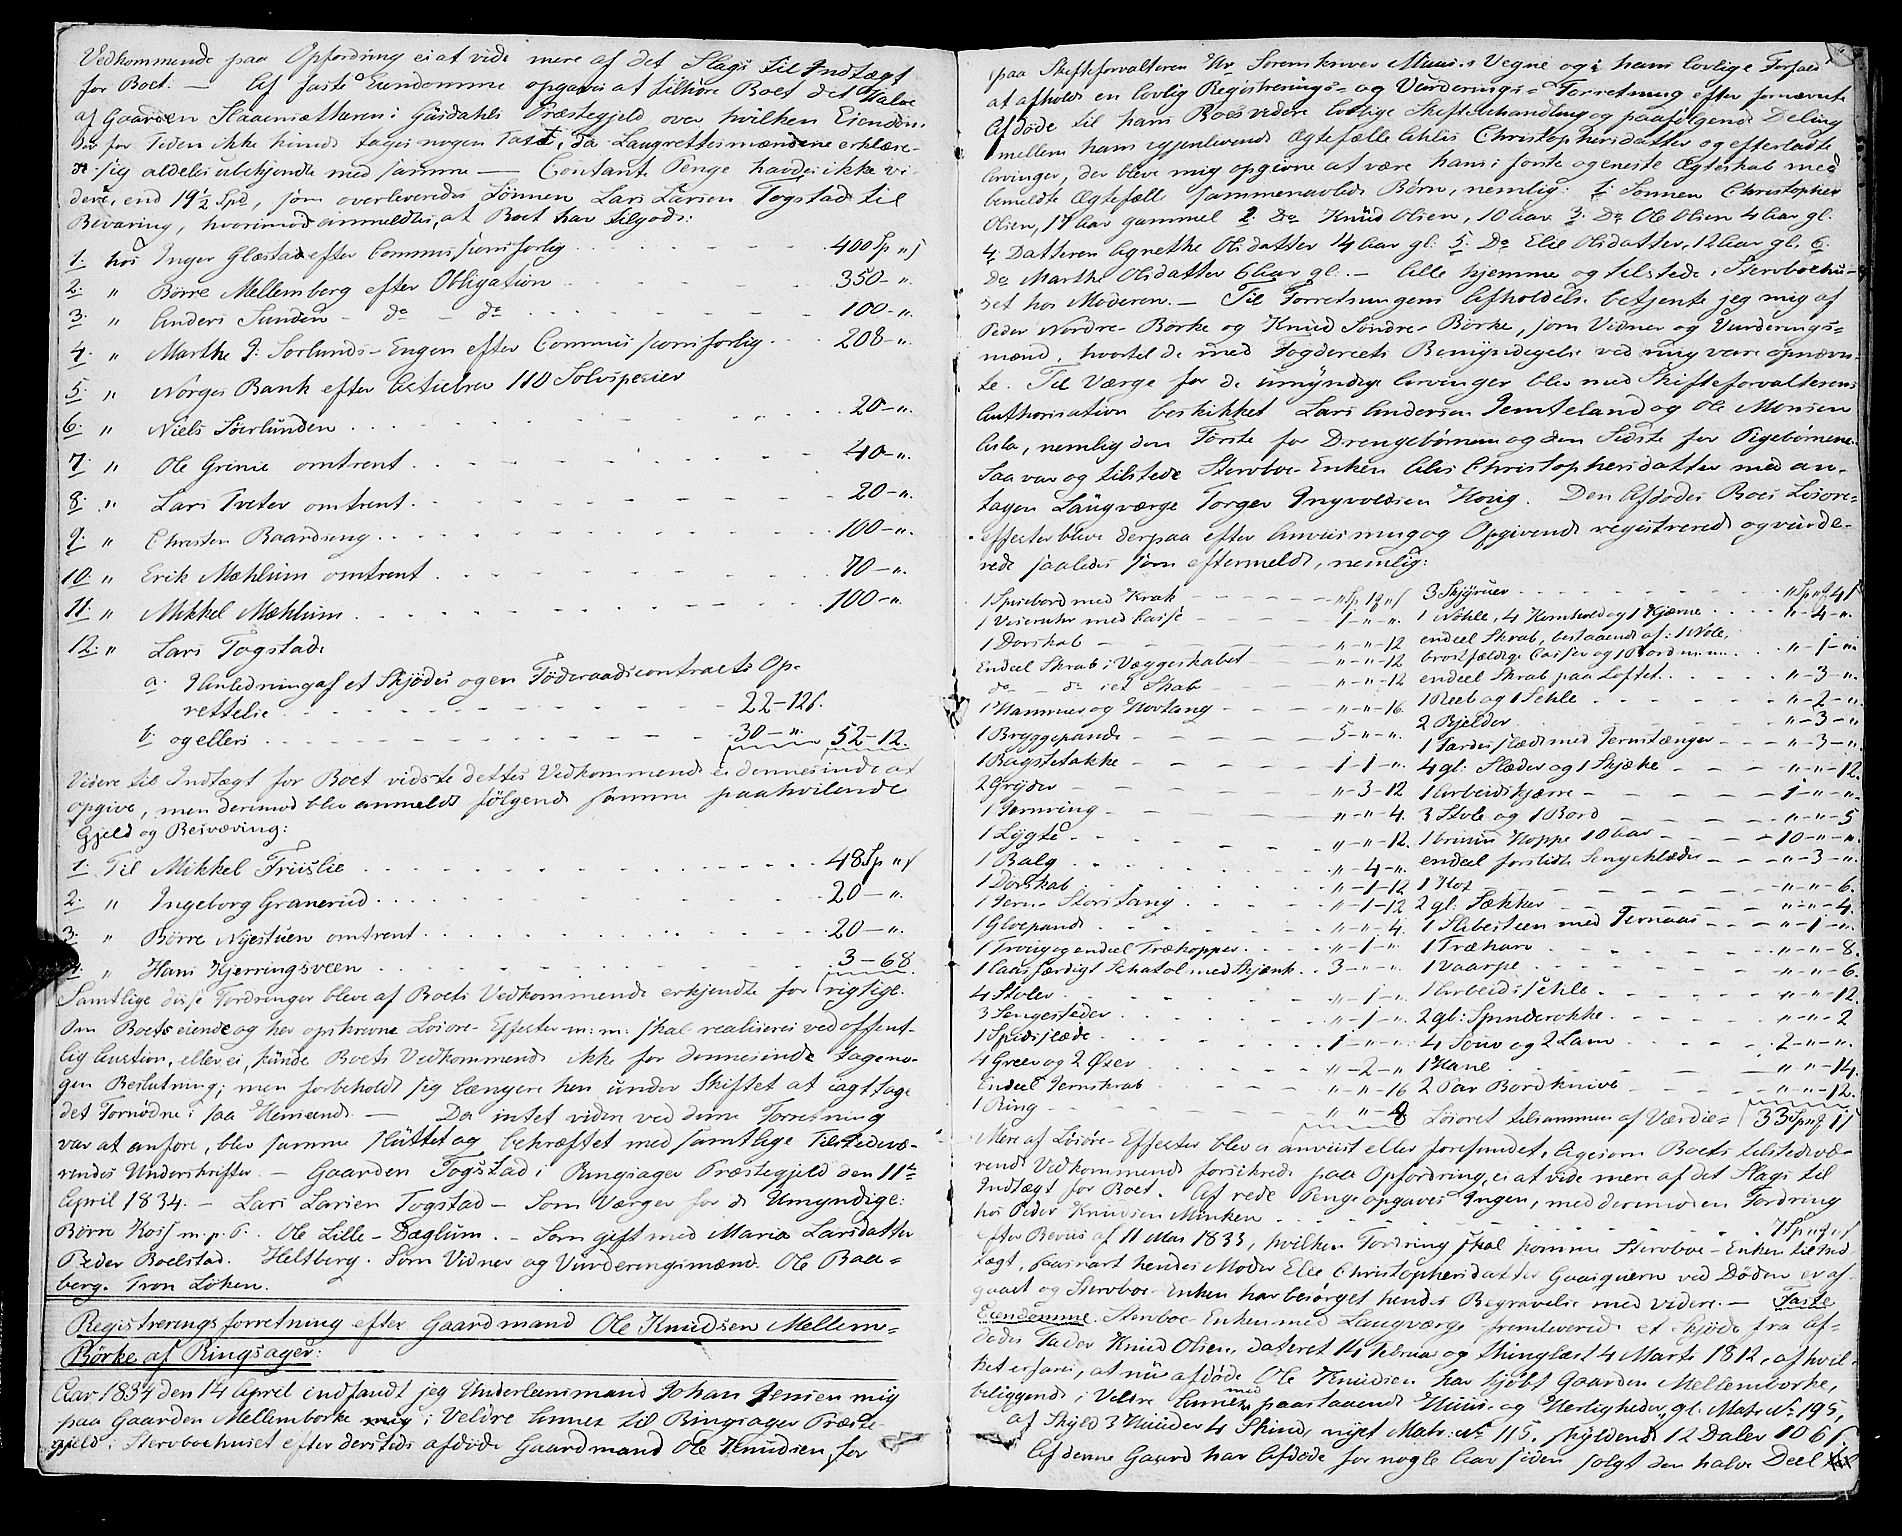 Vedkommende paa Opfordring ei at vide mere af det Slags til Indtægt
for Boet. — Af faste Eiendomme opgaves at tilhøre Boet det Halve
af Gaarden Slaaensætheren i Gusdahls Præstegjeld over hvilken Eiendom
for Tiden ikke kunde tages nogen Taxt, da Laugrettesmændene erklære-
de sig aldeles ubekjendte med samme — Contante Penge havdes ikke vi-
dere, end 19½ Spd, som overleveredes Sønnen Lars Larsen Togstad til
Bevaring, hvorimod anmeldtes, at Boet har tilgode:
1: hos Inger Glæstad efter Commissionsforlig 400 Sp " s
2: " Børre Mellemborg efter Obligation 350 - ".
3: " Anders Sunden - do - do 100 - ".
4: " Marthe J: Sorlunds-Engen efter Commissionsforlig 208 - ".
5: " Norges Bank efter Actiebrev 110 Sølvspecier
6: " Niels Søerlunden 20 - ".
7: " Ole Grinie omtrent 40 - ".
8: " Lars Tveter omtrent 20 - ".
9: " Christen Baardseng 100 - ".
10: " Erik Mæhlum omtrent 70 - ".
11: " Mikkel Mæhlum 100 - ".
12: " Lars Togstad:
a. I Anledning af et Skjødes og en Føderaadscontracts Op-
rettelse 22 - 12 s.
b. og ellers 30 - ". 52 - 12.
Videre til Indtægt for Boet vidste dettes Vedkommende ei dennesinde at
opgive, men derimod blev anmeldt følgende samme paahvilende
Gjeld og Besværing:
1: Til Mikkel Fruslie 48 Sp " s
2: " Ingeborg Granerud 20 - ".
3: " Børre Nyestuen omtrent 20 - ".
4: " Hans Kjerringsveen 3 - 68
Samtlige disse Fordringer bleve af Boets Vedkommende erkjendte for rigtige.
Om Boets eiende og her opskrevne Løsøre-Effecter m: m: skal realiseres ved offent-
lig Auction, eller ei, kunde Boets Vedkommende ikke for dennesinde tage no-
gen Beslutning; men forbeholdt sig længere hen under Skiftet at iagttage
det Fornødne i saa Henseende. — Da intet videre ved denne Forretning
var at anføre, blev samme sluttet og bekræftet med samtlige Tilstedevæ-
rendes Underskrifter. — Gaarden Togstad i Ringsager Præstegjeld den 11te
April 1834. — Lars Larsen Togstad — Som Værger for de Umyndige:
Børre Koss m. p. P. Ole Lille-Dæglum. — Som gift med Maria Larsdatter
Peder Boelstad. Heltberg. Som Vidner og Vurderingsmænd. Ole Baa-
berg. Tron Løken.
Registreringsforretning efter Gaardmand Ole Knudsen Mellem-
Børke af Ringsager:
Aar 1834 den 14 April indfandt jeg Underleensmand Johan Jensen mig
paa Gaarden Mellemborke i Veldre Annex til Ringsager Præste-
gjeld i Stervboehuset efter dersteds afdøde Gaardmand Ole Knudsen, for
paa Skifteforvalteren Hr Sorenskriver Muus's Vegne og i hans lovlige Forfald
at afholde en lovlig Registrerings- og Vurderings-Forretning efter fornævnte
Afdøde til hans Boes videre lovlige Skiftebehandling og paafølgende Deling
mellem hans igjenlevende Ægtefælle Ahlis Christophersdatter og efterladte
Arvinger, der bleve mig opgivne at være hans i første og eneste Ægteskab med
bemeldte Ægtefælle sammenavlede Børn, nemlig: 1: Sønnen Christopher
Olsen, 17 Aar gammel 2: Do Knud Olsen, 10 Aar 3: Do Ole Olsen 4 Aar gl:
4: Datteren Agnethe Olsdatter 14 Aar gl: 5: Do Elie Olsdatter, 12 Aar gl. 6:
Do Marthe Olsdatter 6 Aar gl: — Alle hjemme og tilstede i Stervboehu-
set hos Moderen. — Til Forretningens Afholdelse betjente jeg mig af
Peder Nordre-Børke og Knud Søndre-Børke, som Vidner og Vurderings-
mænd, hvortil de med Fogderiets Bemyndigelse ved mig vare opnævn-
te. Til Værge for de umyndige Arvinger blev med Skifteforvalterens
Authorisation beskikket Lars Andersen Jemteland og Ole Monsen
Asla, nemlig den Første for Drengebørnene og den Sidste for Pigebørnene.
Saa var og tilstede Stervboe-Enken Ahlis Christophersdatter med an-
tagen Laugværge Torger Ingvoldsen Hovig. Den Afdødes Boes Løsøre-
effecter bleve derpaa efter Anviisning og Opgivende registrerede og vurde-
rede saaledes som eftermeldt, nemlig:
1 Spisebord med Krak " Sp 1 " s
1 Viseruhr med Casse 1 - " - ".
1 Dørskab " - " - 12
Endeel Skrab i Væggeskabet " - " - 12
do - do i et Skab " - " - 12
1 Hammer og Hovtang " - " - 16.
1 Bryggepande 5 - " - ".
1 Bagstetakke 1 - 1 - ".
2 Gryder " - 3 - 12
1 Jernring " - " - 4.
1 Lygte " - " - 12.
1 Balg " - 4 - ".
1 Dørskab " - 1 - 12
1 Jern-Storstang " - 1 - 12
1 Gloepande " - " - 4.
1 Troug og endeel Træhopper " - 1 - ".
1 Caasfærdigt Schatol med Skjænk 3 - " - ".
4 Stoler " - 1 - ".
3 Sengesteder " - 1 - ".
1 Spidsslæde 1 - " - ".
4 Greer og 2 Øxer " - 2 - "
Endeel Jernskrab " - " - 16
1 Ring " " - 8
3 Skjyruer " Sp " s 4 s
1 Nøhle, 4 Hornhold og 1 Kjærne " - 4 - ".
endeel Skrab, bestaaende af: 1 Nøle,
brøstfældige Casser og 1 Bord m: m: " - 1 - "
endeel Skrab paa Loftet " - 3 - ".
1 Reeb og 1 Sehle " - 2 - ".
2 Bjelder " - 3 - "
1 Fardesslæde med Jernstænger " - 3 - ".
4 gl: Slæder og 1 Skjæke " - " - 12.
1 Arbeidskjærre 1 - " - ".
3 Stole og 1 Bord " - " - 5
1 bruun Hoppe 10 Aar 10 - " - ".
endeel forslidte Sengeklæder " - 3 - ".
1 Kot " - " - 6.
2 gl: Sækker " - " - 4.
1 Slibesteen med Jernaas " - 1 - ".
1 Træharv " - " - 8.
1 Vaarpe " - " - 6.
1 Arbeidssehle " - " - 12
2 gl: Spinderokke " - " - 2
4 Souv og 2 Lam 2 - " - ".
1 Hane " - " - 14.
2 Par Bordknive " - " - 12.
Løsøret tilsammen af Værdie 33 Sp " s 11
Mere af Løsøre-Effecter blev ei anviist eller forefundet, ligesom Boets tilstedevæ-
rende Vedkommende forsikrede paa Opfordring, ei at vide mere af det Slags til
Indtægt for Boet. Af rede Penge opgaves Ingen, med derimod en Fordring
hos Peder Knudsen Minken 7 Sp " s
efter Beviis af 11 Mai 1833, hvilken Fordring skal komme Stervboe-Enken til Ind-
tægt, saasnart hendes Moder Elie Christophersdatter Gaasquern ved Døden er af-
gaaet og Stervboe-Enken har besørget hendes Begravelse med videre. — Faste
Eiendomme. Stervboe-Enken med Laugværge fremleverede et Skjøde fra Af-
dødes Fader Knud Olsen, dateret 14 Februar og thinglæst 4 Marts 1812, af hvil-
ket erfares, at nu afdøde Ole Knudsen har kjøbt Gaarden Mellemborke,
beliggende i Veldre Annex med paastaaende Huus- og Herligheder, gl: Matr: No 195,
af Skyld 3 Huder 4 Skind, nyet Matr: No 115, skyldende 12 Daler 106 s
Af denne Gaard har Afdøde for nogle Aar siden solgt den halve Deel